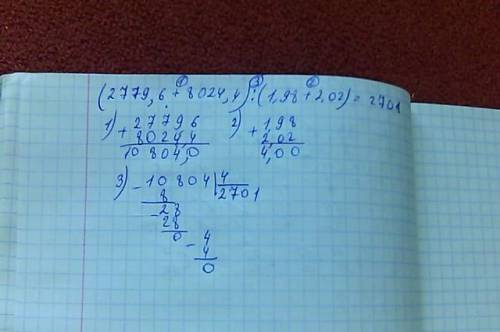 ① ③ ②
(2779,6 + 8024,4) : (1,98 + 2,02) = 2701
1) + 27796 2) + 1,98
80244 2,02
10 804,0 4,00
3) - 10 804 | 4
8 2701
- 28
28
0 - 4
4
0